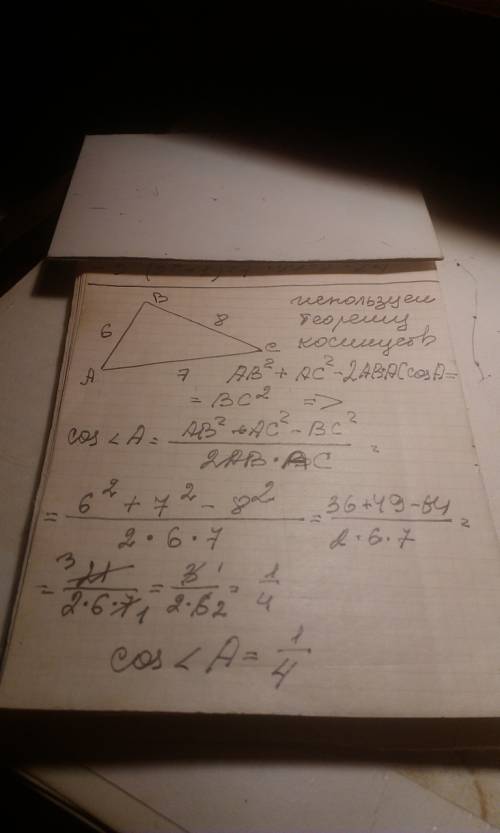 B
6
8
A
C
7
используем
теорему
косинусов
AB² + AC² - 2AB·AC cosA =
= BC² =>
cos∠A = (AB² + AC² - BC²) / (2AB·AC) =
= (6² + 7² - 8²) / (2·6·7) = (36+49-64) / (2·6·7) =
= 3 21 / (2·6·7 1) = 3 1 / (2·6 2) = 1/4
cos∠A = 1/4